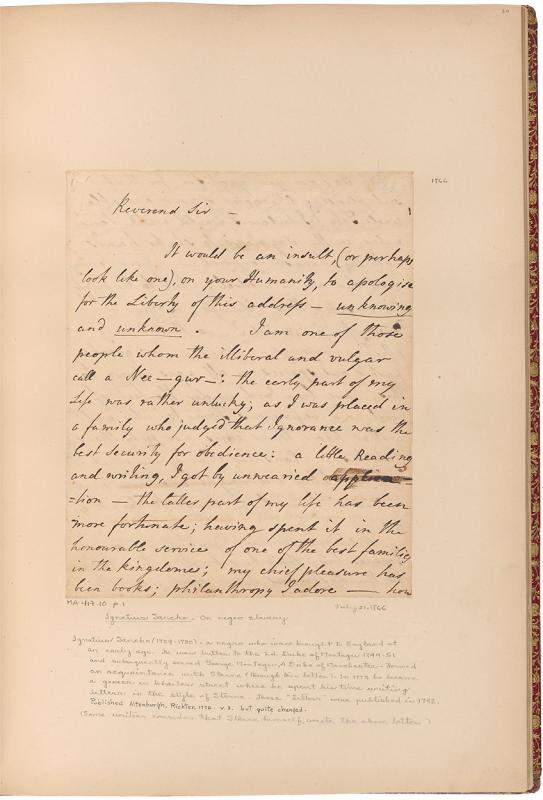 20
1766
Reverend Sir –
It would be an insult, (or perhaps
look like one), on your Humanity, to apologise
for the Liberty of this address – unknowing
and unknown . I am one of those
people whom the illiberal and vulgar
call a Nee–gur–: the early part of my
Life was rather unlucky; as I was placed in
a family who judged that Ignorance was the
best security for obedience: a little Reading
and writing, I got by unwearied applica
=tion – the latter part of my life has been
more fortunate; having spent it in the
honourable service of one of the best families
in the kingdome; my chief pleasure has
been books; philanthropy I adore — how
MA 417.10 p.1
July 21. 1766
Ignatius Sancho. On negro slavery
Ignatius Sancho (1729-1780) - a negro who was brought to England at
an early age. He was butler to the 2d. Duke of Montagu 1749-51
and subsequently served George Montagu, Duke of Manchester. Formed
an acquaintance with Sterne (through this letter). In 1773 he became
a grocer in Charles street where he spent his time writing
letters in the style of Sterne. These "Letters" were published in 1782.
Published Altenburgh, Richter, 1776. v.3. but quite changed.
(Some writers consider that Sterne himself wrote the above letter)